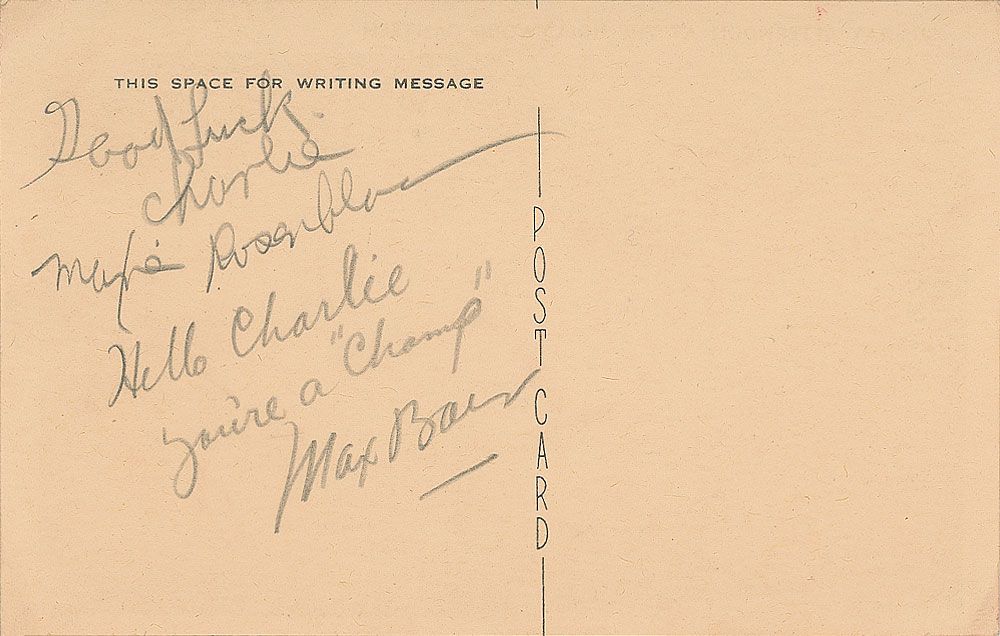 THIS SPACE FOR WRITING MESSAGE
Good Luck
Charlie
Maxie Rosenbloom
Hello Charlie
you're a "Champ"
Max Baer
POST CARD